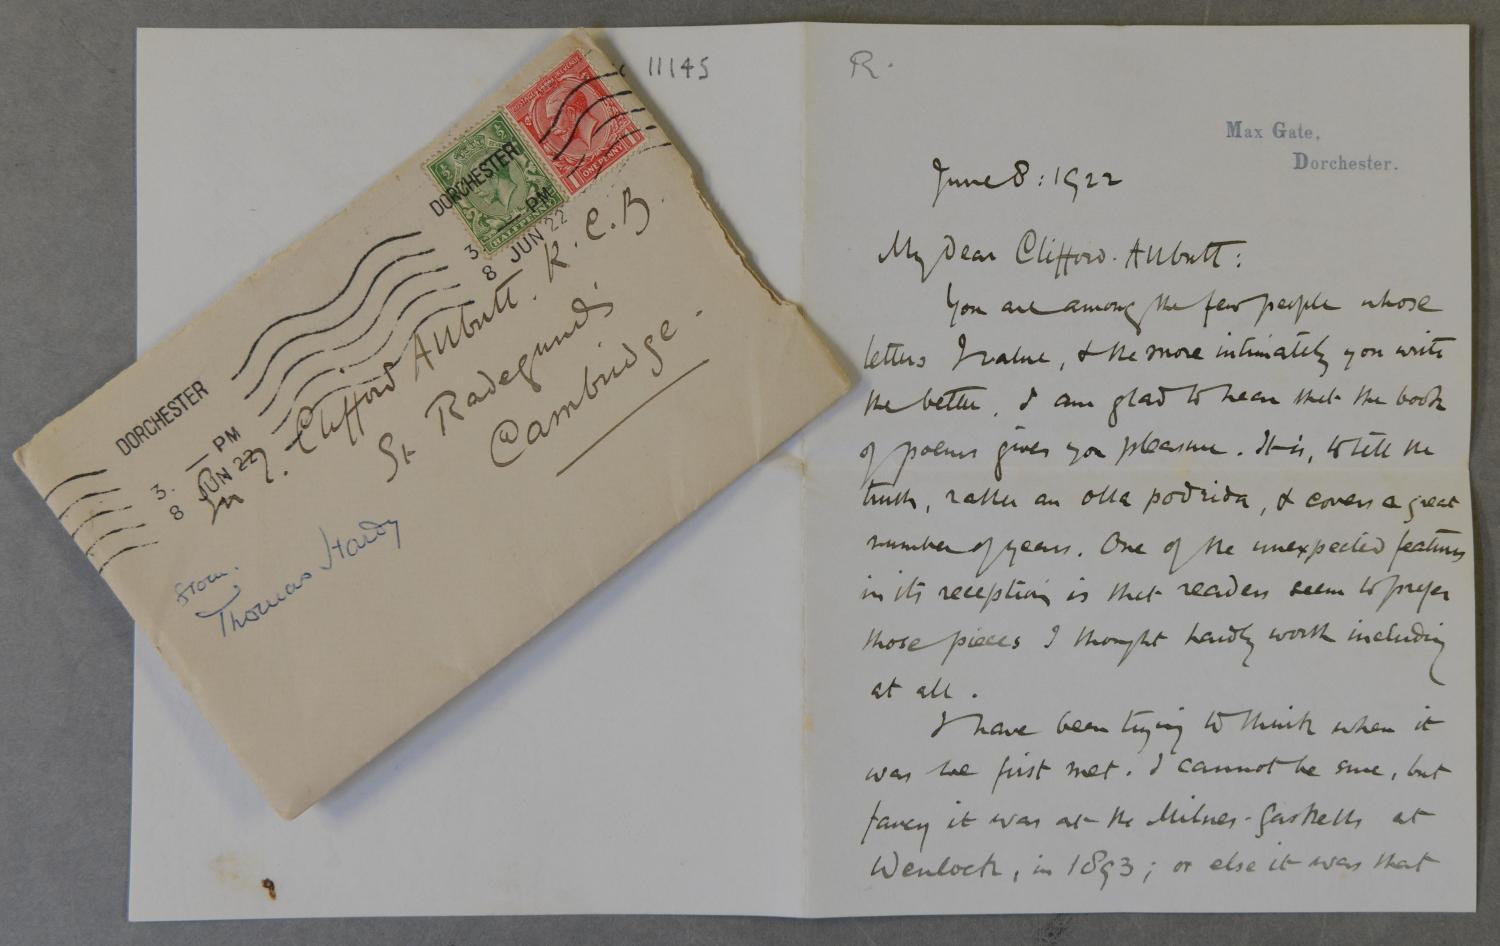 11145
R.
DORCHESTER
3. — PM
8 JUN 22
DORCHESTER
3. — PM
8 JUN 22
HALFPENNY
ONE PENNY
Sir T. Clifford Allbutt. K.C.B.
St Radegunds
Cambridge.
from.
Thomas Hardy
Max Gate,
Dorchester.
June 8: 1922
My dear Clifford-Allbutt:
You are among the few people whose
letters I value, & the more intimately you write
the better. I am glad to hear that the book
of poems gives you pleasure. It is, to tell the
truth, rather an olla podrida, & covers a great
number of years. One of the unexpected features
in its reception is that readers seem to prefer
those pieces I thought hardly worth including
at all.
I have been trying to think when it
was we first met. I cannot be sure, but
fancy it was at the Milnes-Gaskells at
Wenlock, in 1893; or else it was that